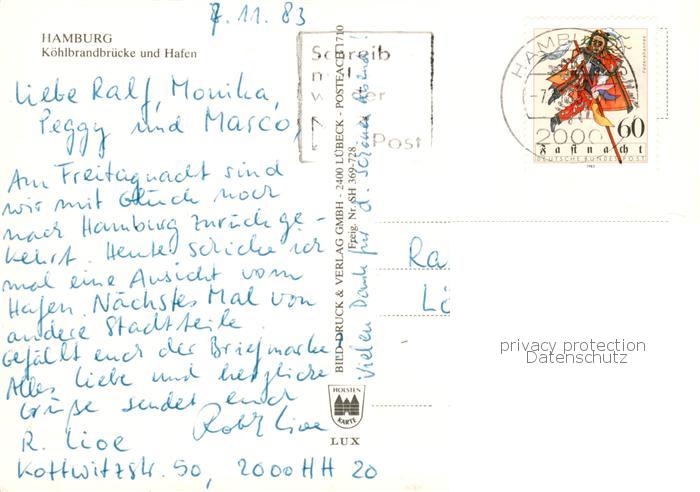 7.11.83
HAMBURG
Köhlbrandbrücke und Hafen
Liebe Ralf, Monika,
Peggy und Marco,
Am Freitagnacht sind
wir mit Glück noch
nach Hamburg zurückge-
kehrt. Heute schicke ich
mal eine Ansicht vom
Hafen. Nächstes Mal von
andere Stadtteile.
Gefällt euch der Briefmarke?
Alles liebe und herzliche
Grüße sendet euch
R. Lioe
Kottwitzstr. 50, 2000 HH 20
Vielen Dank für d. schönen Abend!
BILD DRUCK & VERLAG GMBH - 2400 LÜBECK - POSTFACH 1710
Freig. Nr. SH 369-728
HOLSTEN
KARTE
LUX
Schreib
Post
HAMB
2000
60
Fastnacht
DEUTSCHE BUNDESPOST
1983
Ra
Lö
privacy protection
Datenschutz